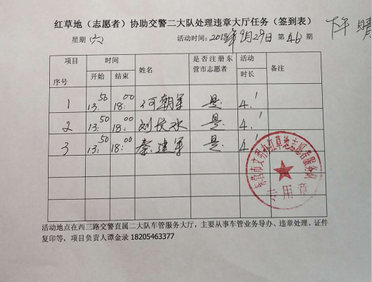 红草地（志愿者）协助交警二大队处理违章大厅任务（签到表）
下午 晴
星期 六 活动时间：2018年9月29日 第46期
项目 时间 姓名 是否注册东营市志愿者 活动时长 备注
序号 开始 结束
1 13:50 18:00 何朝军 是 4.1
2 13:50 18:00 刘长水 是 4.1
3 13:50 18:00 秦建军 是 4.1
专用章
活动地点在西三路交警直属二大队车管服务大厅，主要从事车管业务导办、违章处理、证件
复印等，项目负责人谭金录 18205463377